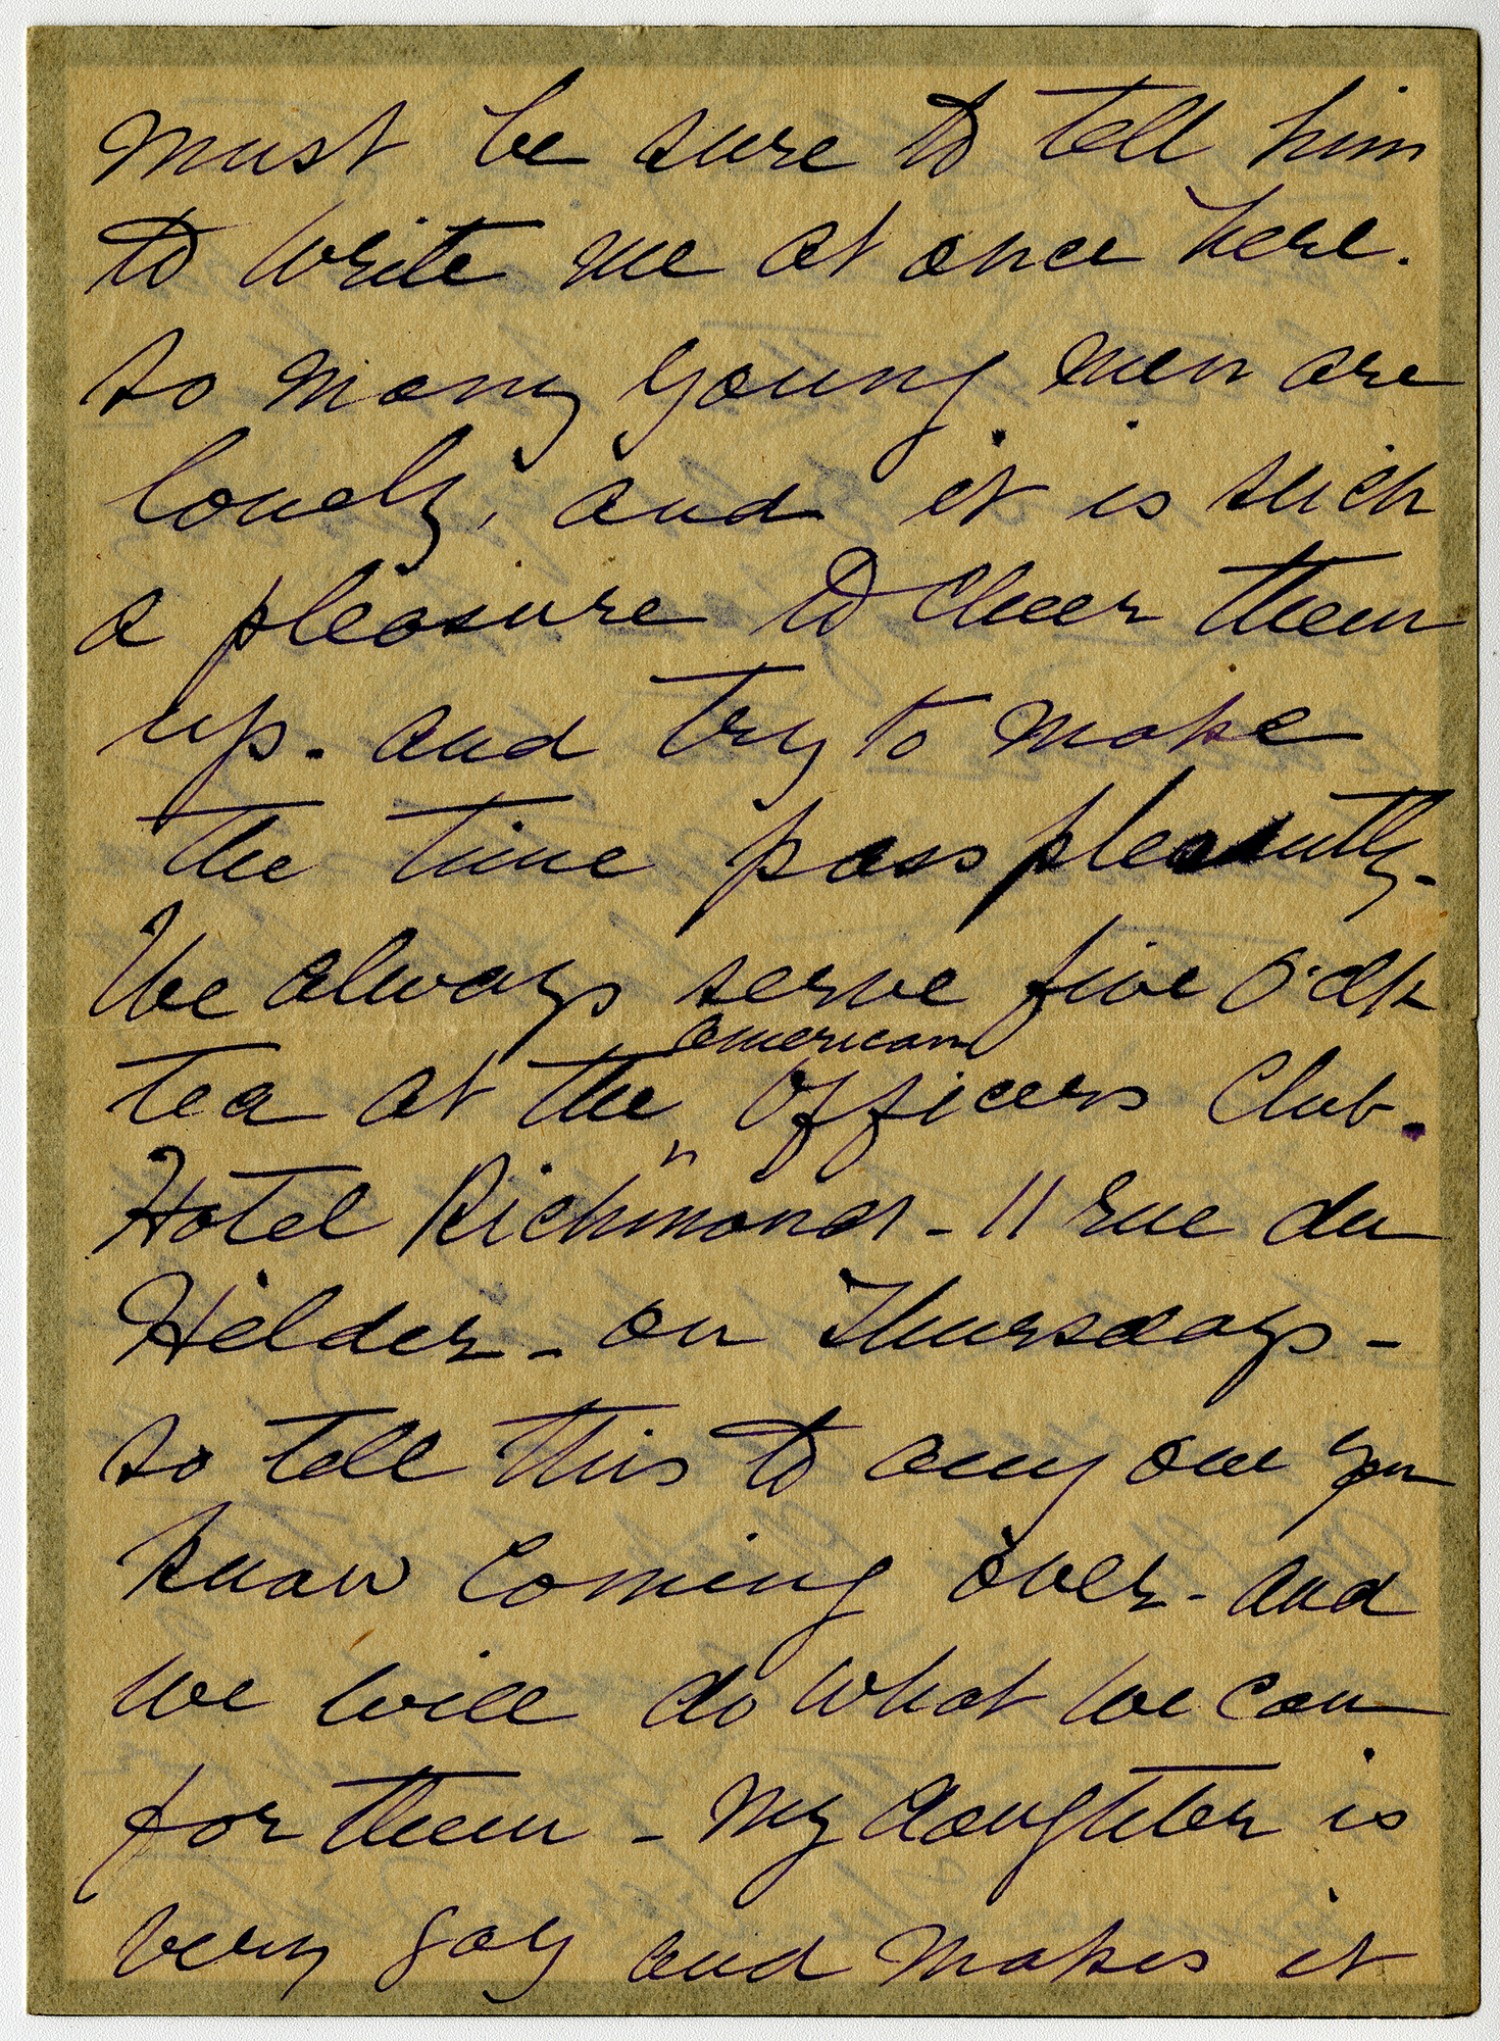 must be sure to tell him
to write me at once here.
so many young men are
lonely, and it is such
a pleasure to cheer them
up. and try to make
the time pass pleasantly.
We always serve five o'clk
tea at the ^ American Officers Club.
Hotel Richmond - 11 rue du
Helder - on Thursdays -
so tell this to any one you
know coming over - and
we will do what we can
for them - My daughter is
very gay and makes it